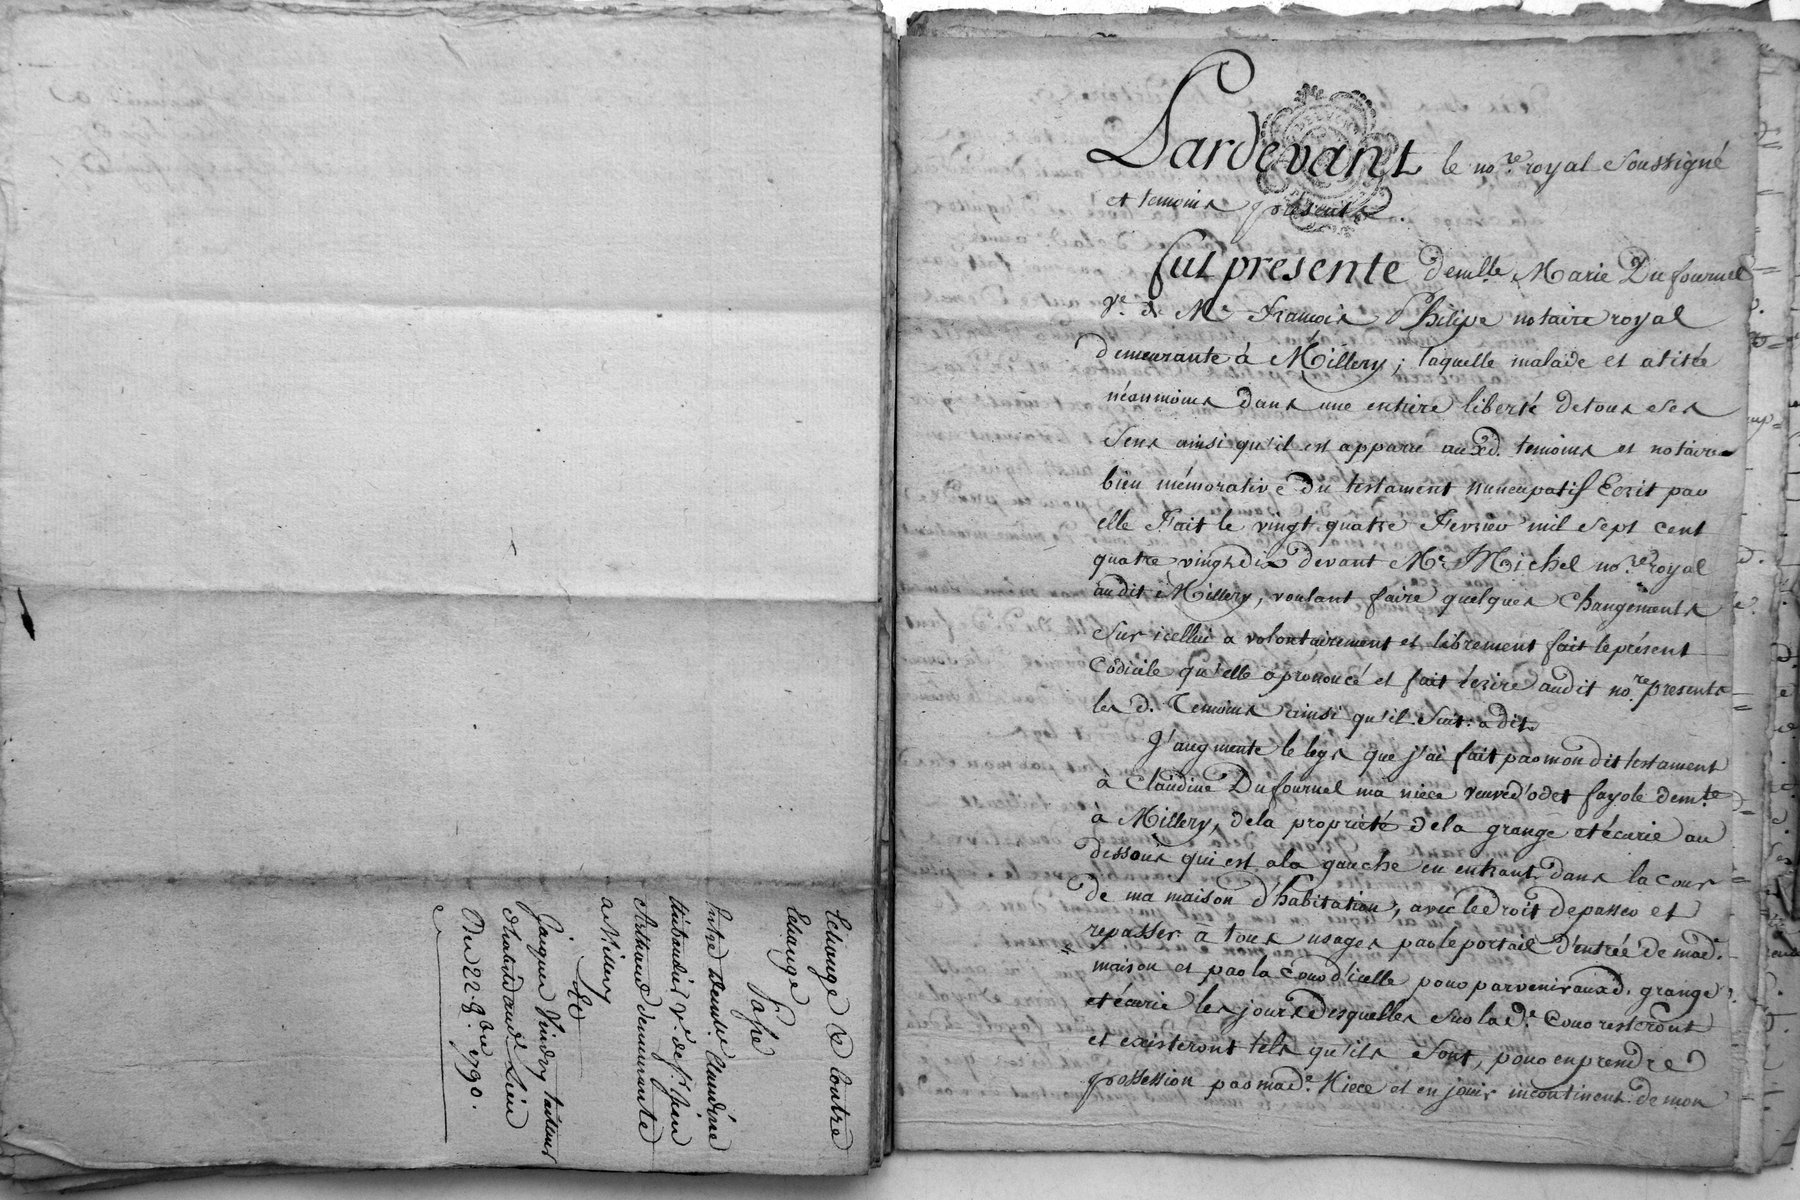 Echange & Contre
Echange
Passé
Entre demlle Claudine
thibaudier Ve. de Sr. Jean
Arthaud demeurante
a Millery
Et
Jacques Vindry tailleur
d'habits audt. Lieu
Du 22. 9bre. 1790.
Pardevant le nore. royal Soussigné
et temoins présents.
fut presente demlle. Marie Dufournel
Ve. de Me François Philipe notaire royal
demeurante à Millery; laquelle malade et alitée
néanmoins dans une entiere liberté de tous ses
Sens ainsi qu'il est apparu auxd. temoins et notaire
bien mémorative du testament nuncupatif Ecrit par
elle Fait le vingt quatre Fevrier mil sept cent
quatre vingt dix devant Me. Michel nore. royal
audit Millery, voulant faire quelques changements
sur icelluy a volontairement et librement fait le présent
Codicile qu'elle a prononcé et fait écrire audit nore. presents
les d. Temoins ainsi qu'il Suit. a dit
J'augmente le legs que j'ai fait par mon dit testament
à Claudine Dufournel ma niece veuve d'odet fayole demte.
à Millery, de la proprieté de la grange et écurie au
dessous qui est a la gauche en entrant dans la cour
de ma maison d'habitation, avec le droit de passer et
repasser a tous usages par le portail d'entrée de mad.
maison et par la Cour d'icelle pour parvenir auxd. grange
et écurie les jours desquelles sur lad. Cour resteront
et existeront tels qu'ils sont, pour en prendre
possession par mad. Niece et en jouir incontinent de mon